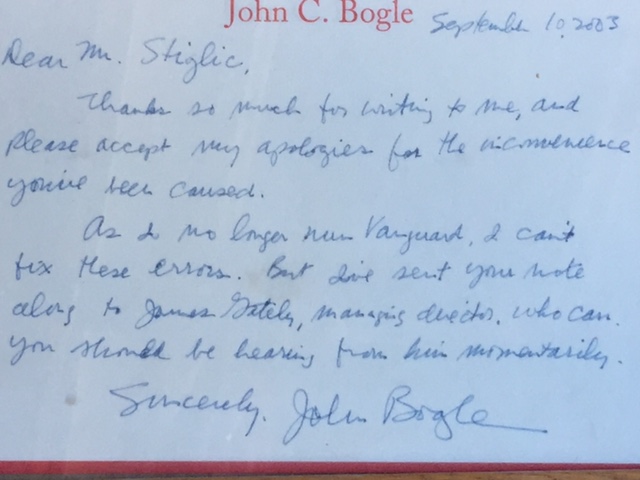 John C. Bogle
September 10, 2003
Dear Mr. Stiglic,
Thanks so much for writing to me, and
please accept my apologies for the inconvenience
you've been caused.
As I no longer run Vanguard, I can't
fix these errors. But I've sent your note
along to James Gately, managing director, who can.
You should be hearing from him momentarily.
Sincerely, John Bogle